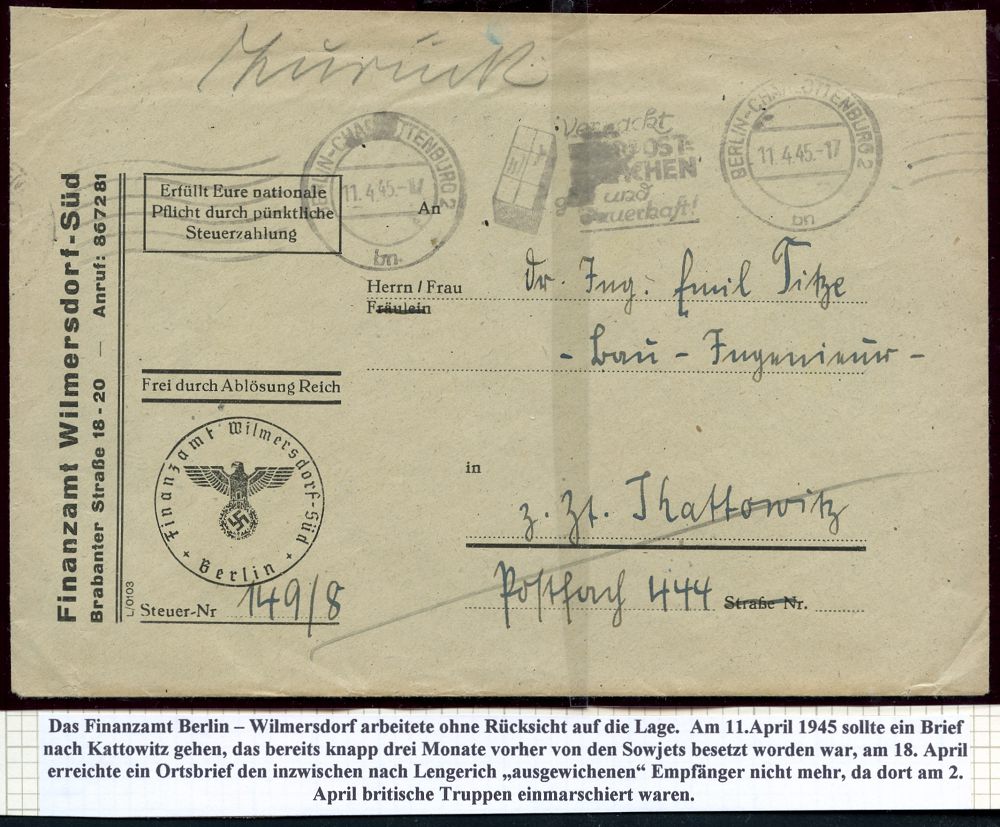 Zurück
BERLIN-CHARLOTTENBURG 2
11.4.45.-17
bn.
Verpackt
und
dauerhaft!
BERLIN-CHARLOTTENBURG 2
11.4.45.-17
bn
Finanzamt Wilmersdorf-Süd
Brabanter Straße 18-20 — Anruf: 867281
Erfüllt Eure nationale
Pflicht durch pünktliche
Steuerzahlung
An
Herrn / Frau
Fräulein
Dr. Ing. Emil Titze
- Bau - Ingenieur -
Frei durch Ablösung Reich
Finanzamt Wilmersdorf-Süd
Berlin
in
z. Zt. Kattowitz
Postfach 444 Straße Nr.
L/0103
Steuer-Nr 149/8
Das Finanzamt Berlin – Wilmersdorf arbeitete ohne Rücksicht auf die Lage. Am 11.April 1945 sollte ein Brief
nach Kattowitz gehen, das bereits knapp drei Monate vorher von den Sowjets besetzt worden war, am 18. April
erreichte ein Ortsbrief den inzwischen nach Lengerich „ausgewichenen“ Empfänger nicht mehr, da dort am 2.
April britische Truppen einmarschiert waren.